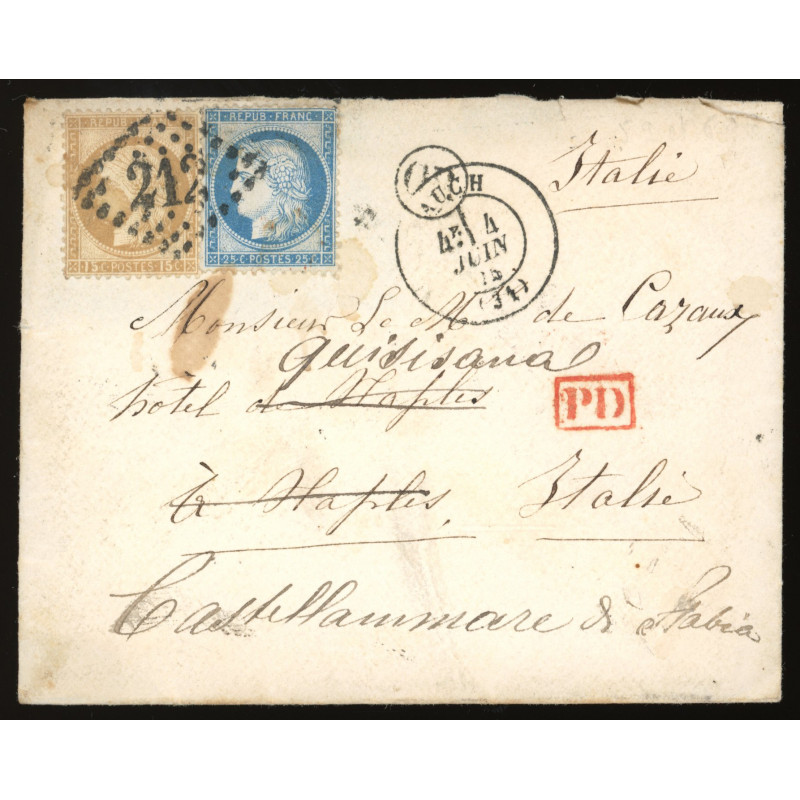 REPUB
15C·POSTES·15C
212
REPUB·FRANC
25C·POSTES·25C
AUCH
4E 4
JUIN
(34)
Italie
Monsieur Le M de Cazaux
Quisisana
hotel de Naples
PD
à Naples, Italie
Castellammare di Stabia